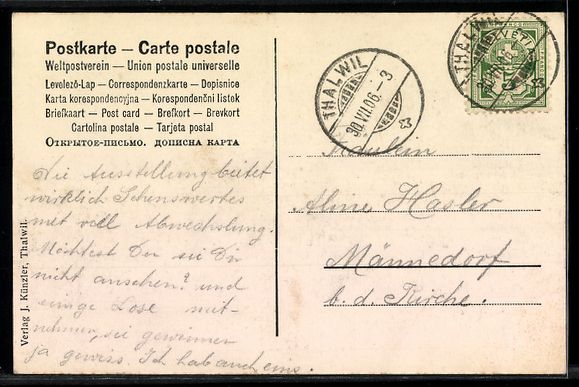 Postkarte — Carte postale
Weltpostverein — Union postale universelle
Levelező-Lap — Correspondenzkarte — Dopisnice
Karta korespondencyjna — Korespondenční listok
Briefkaart — Post card — Brefkort — Brevkort
Cartolina postale — Tarjeta postal
Открытое-письмо. дописна карта
THALWIL
30.VII.06.-3
THALWIL
HELVETIA
Fräulein
Aline Hasler
Männedorf
b. d. Kirche.
Die Ausstellung bietet
wirklich Sehenswertes
mit voll Abwechslung.
Möchtest Du sie Dir
nicht ansehen? und
einige Lose mit-
nehmen, sie gewinnen
ja gewiss. Ich hab auch eins.
Verlag J. Künzler, Thalwil.